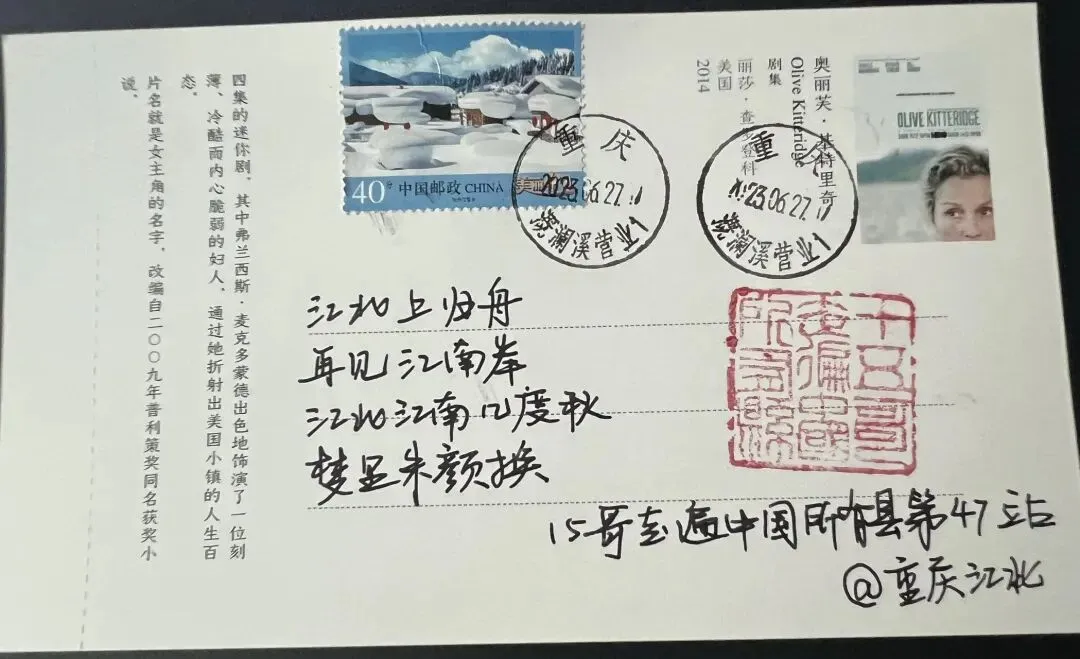 四集的迷你剧，其中弗兰西斯·麦克多蒙德出色地饰演了一位刻
薄、冷酷而内心脆弱的妇人，通过她折射出美国小镇的人生百
态。
片名就是女主角的名字，改编自二〇〇九年普利策奖同名获奖小
说。
40分 中国邮政 CHINA
重庆
2023.06.27
澜溪营业1
奥丽芙·基特里奇
Olive Kitteridge
剧集
丽莎·查罗登科
美国
2014
重庆
23.06.27
澜溪营业1
OLIVE KITTERIDGE
江北上归舟
再见江南岸
江北江南几度秋
梦里朱颜换
十五哥
走徧中國
所有縣
15哥走遍中国所有县第47站
@重庆江北